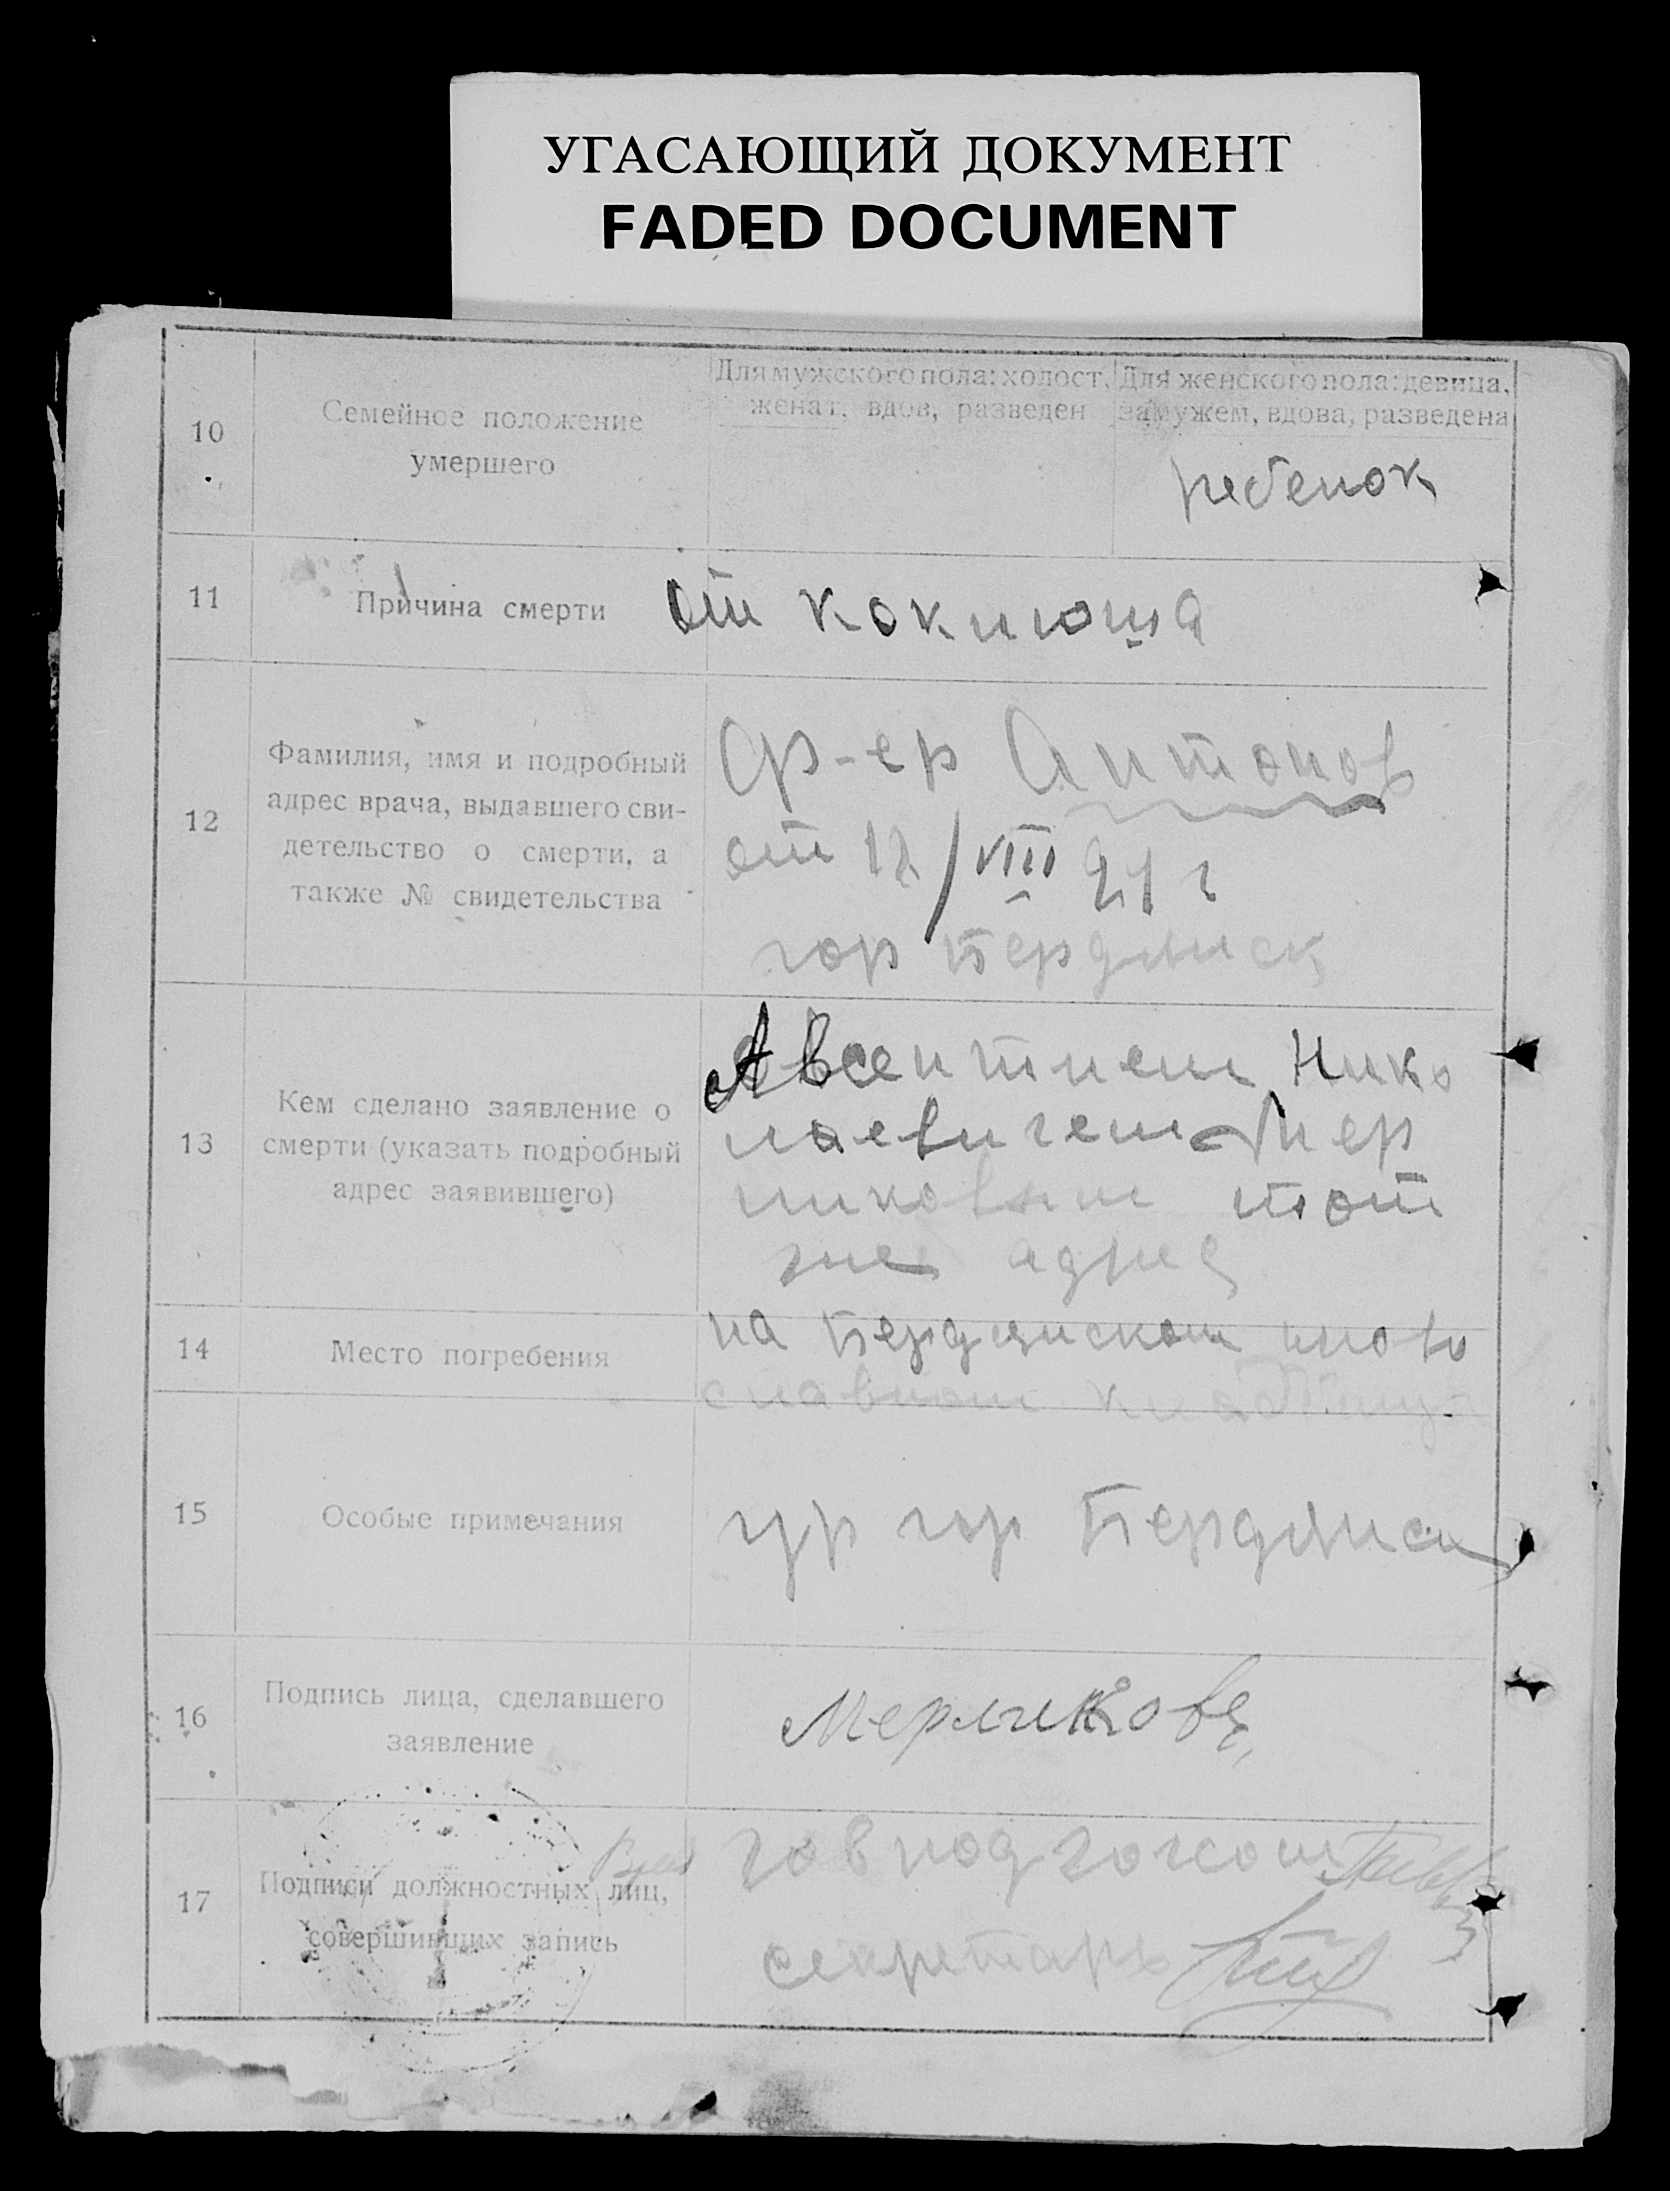 УГАСАЮЩИЙ ДОКУМЕНТ
FADED DOCUMENT
10
Семейное положение
умершего
Для мужского пола: холост,
женат, вдов, разведен
Для женского пола: девица,
замужем, вдова, разведена
ребенок
11
Причина смерти
от коклюша
12
Фамилия, имя и подробный
адрес врача, выдавшего сви-
детельство о смерти, а
также № свидетельства
Ф-ер Антонов
от 12/VIII 21 г
гор Бердянск
13
Кем сделано заявление о
смерти (указать подробный
адрес заявившего)
Авсентием Нико
лаевичем Мер
ликовым тот
же адрес
14
Место погребения
на Бердянском
славном
15
Особые примечания
гр гор Бердянск
16
Подпись лица, сделавшего
заявление
Мерликов
17
Подписи должностных лиц,
совершивших запись
секретарь